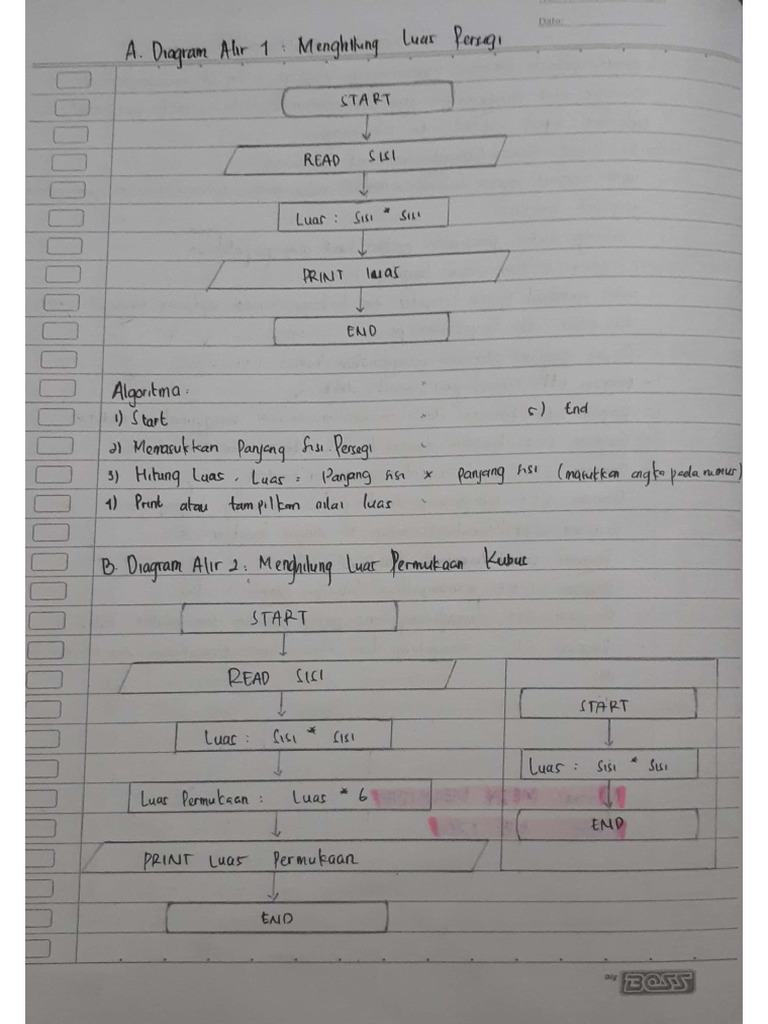 Date:
A. Diagram Alir 1 : Menghitung Luas Persegi
START
READ SISI
Luas : sisi * sisi
PRINT luas
END
Algoritma :
1) Start
5) End
2) Memasukkan Panjang sisi Persegi
3) Hitung Luas . Luas = Panjang sisi x panjang sisi (masukkan angka pada rumus)
4) Print atau tampilkan nilai luas
B. Diagram Alir 2 : Menghitung Luas Permukaan Kubus
START
READ SISI
Luas : sisi * sisi
Luas Permukaan : Luas * 6
PRINT Luas Permukaan
END
START
Luas : sisi * sisi
END
BOSS